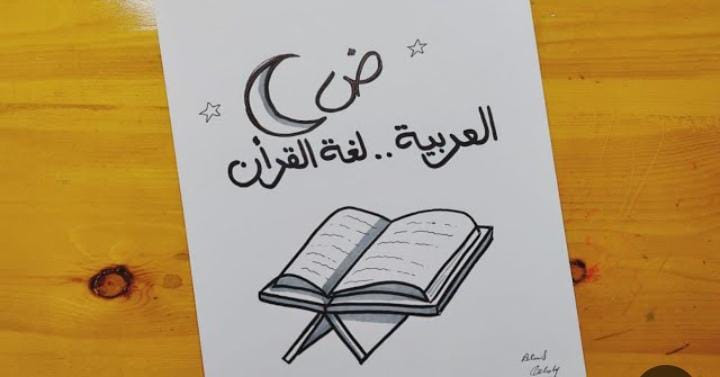 ض
العربية .. لغة القرأن